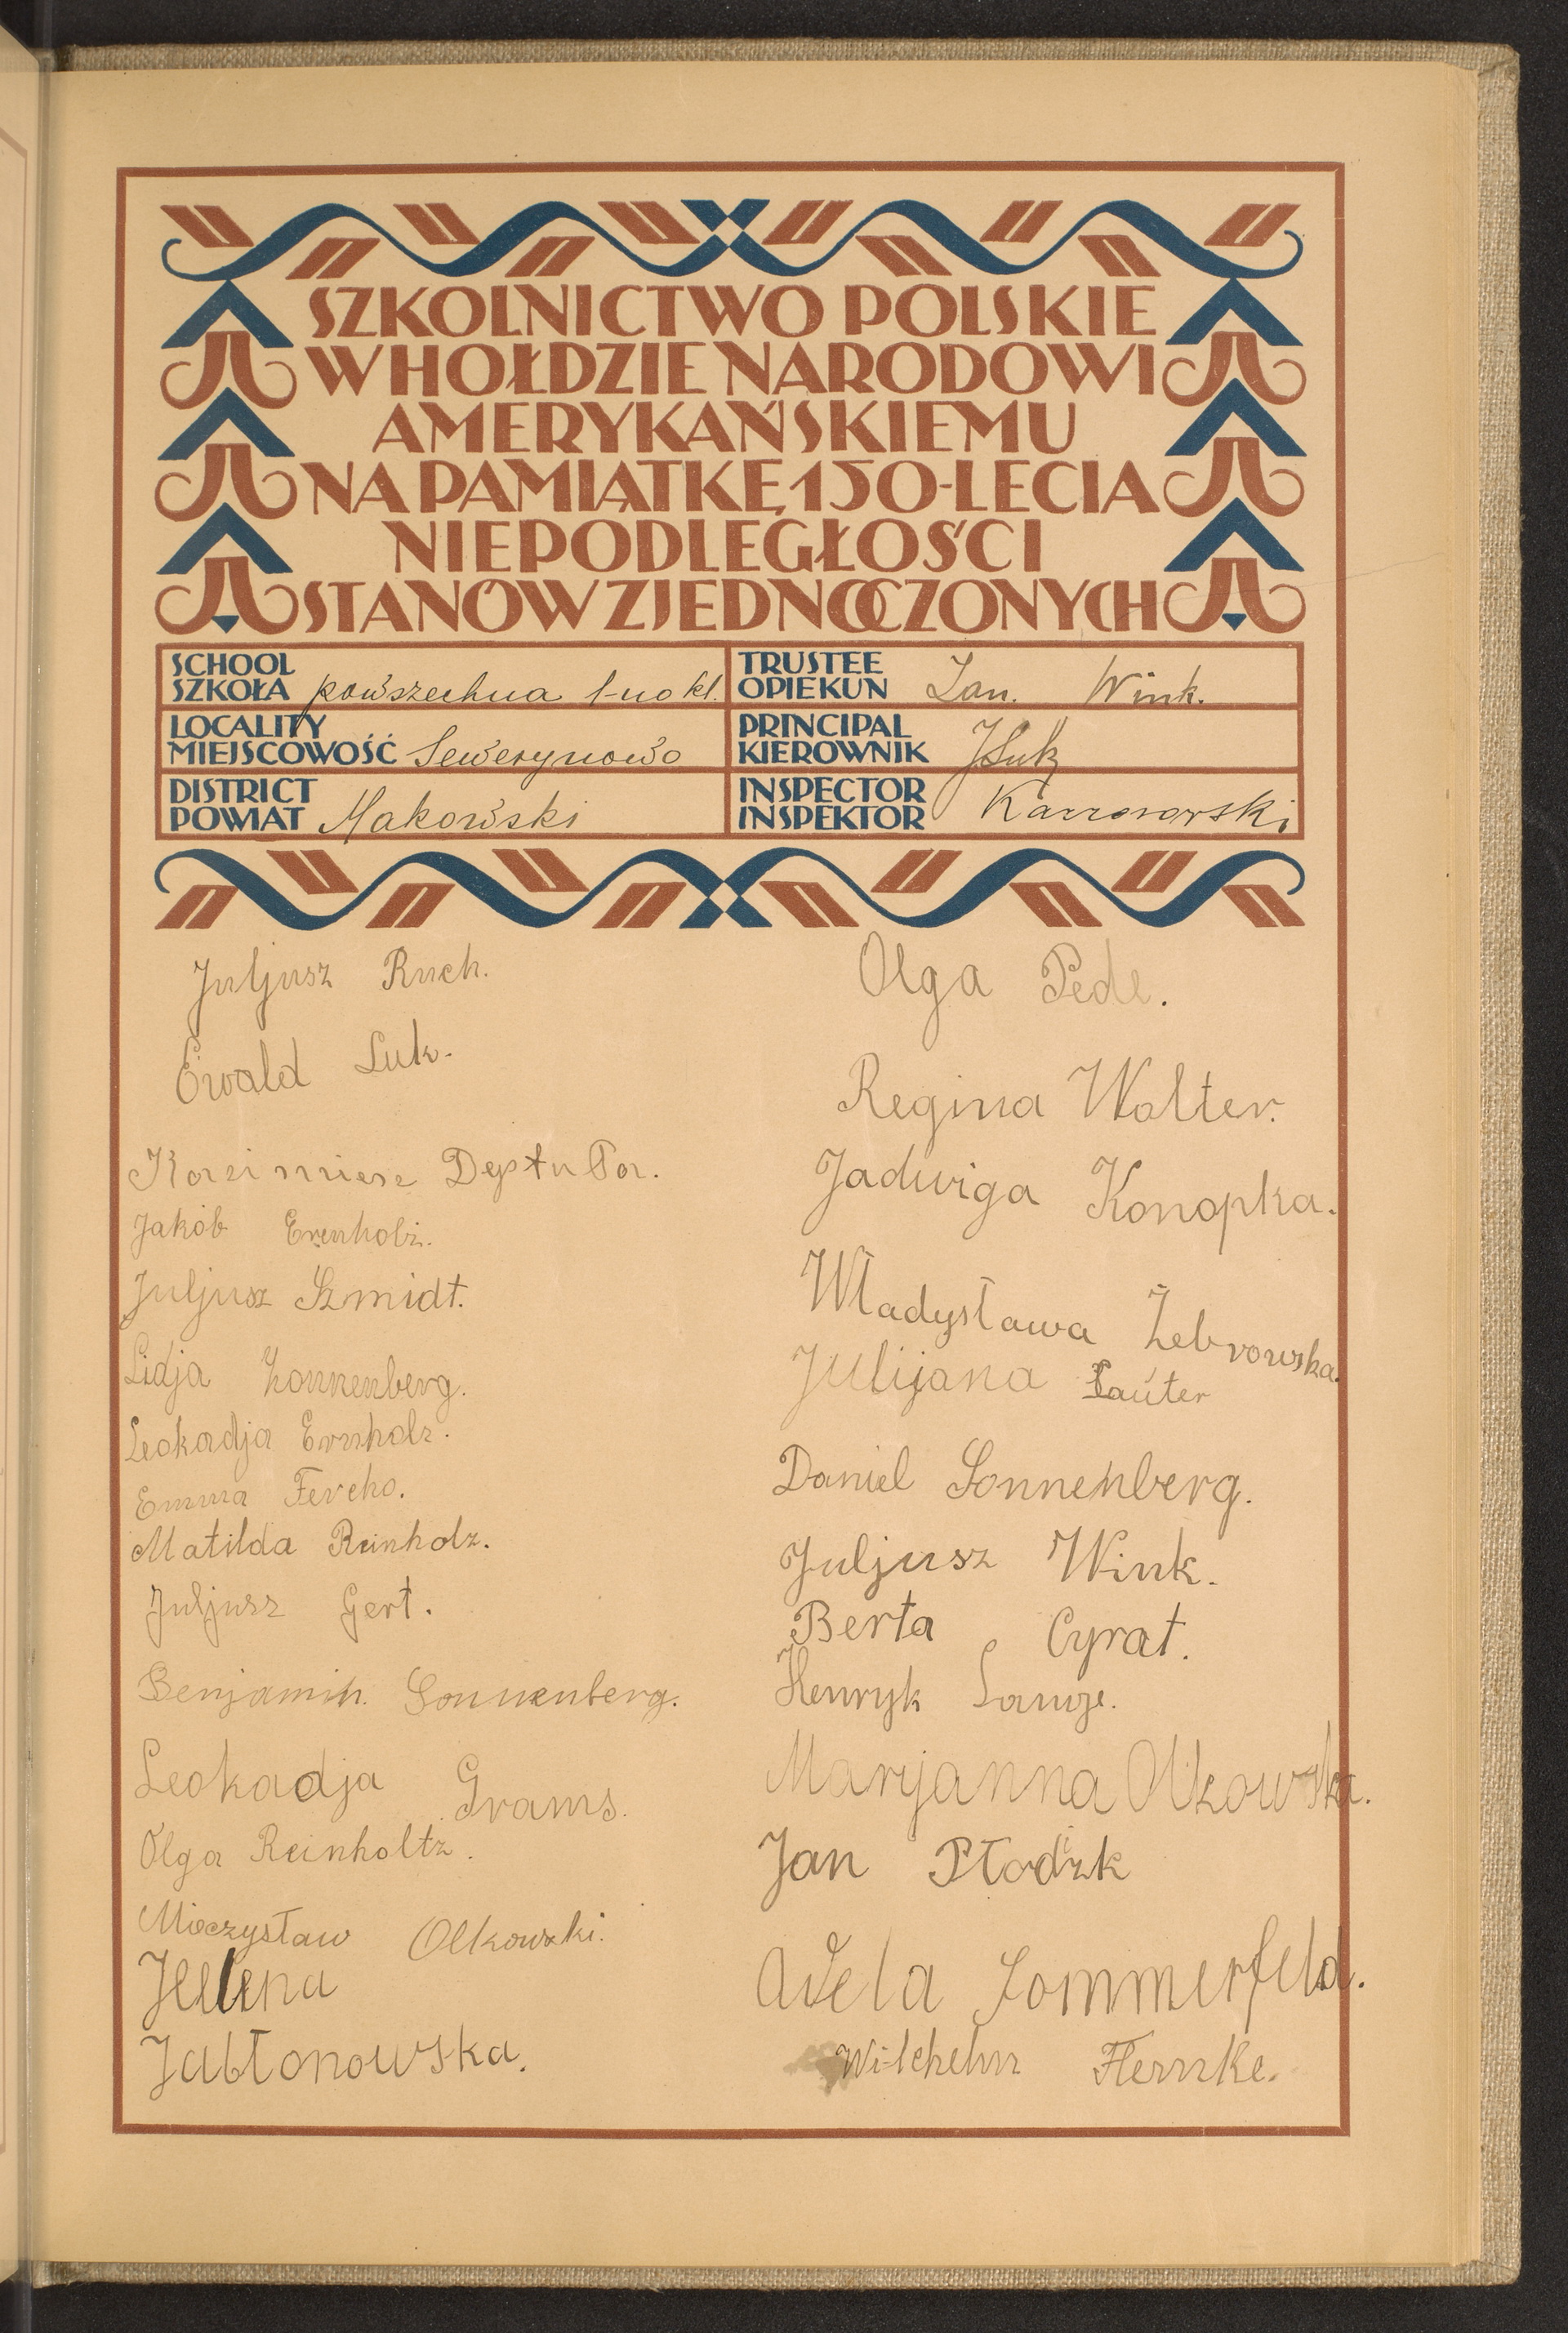 SZKOLNICTWO POLSKIE
W HOŁDZIE NARODOWI
AMERYKAŃSKIEMU
NA PAMIĄTKĘ 150-LECIA
NIEPODLEGŁOŚCI
STANÓW ZJEDNOCZONYCH
SCHOOL
SZKOŁA powszechna 1-no kl.
LOCALITY
MIEJSCOWOŚĆ Sewerynowo
DISTRICT
POWIAT Makowski
TRUSTEE
OPIEKUN Jan. Wink.
PRINCIPAL
KIEROWNIK JSuk
INSPECTOR
INSPEKTOR
Juljusz Ruch.
Ewald Suk.
Kazimierz
Jakób Erenholz.
Juljusz Szmidt.
Lidja Zonnenberg.
Leokadja Ernholz.
Emma Fercho.
Matilda Reinholz.
Juljusz Gert.
Benjamin. Sonnenberg.
Leokadja Grams.
Olga Reinholtz.
Mieczysław Olkowski.
Helena
Jabłonowska.
Olga Pede.
Regina Wolter.
Jadwiga Konopka.
Władysława Żebrowska.
Julijana Lauter
Daniel Sonnenberg.
Juljusz Wink.
Berta Cyrat.
Henryk Lange.
Marjanna Olkowska.
Jan Płodzk
Adela Sommerfeld.
Wilchelm Hemke.